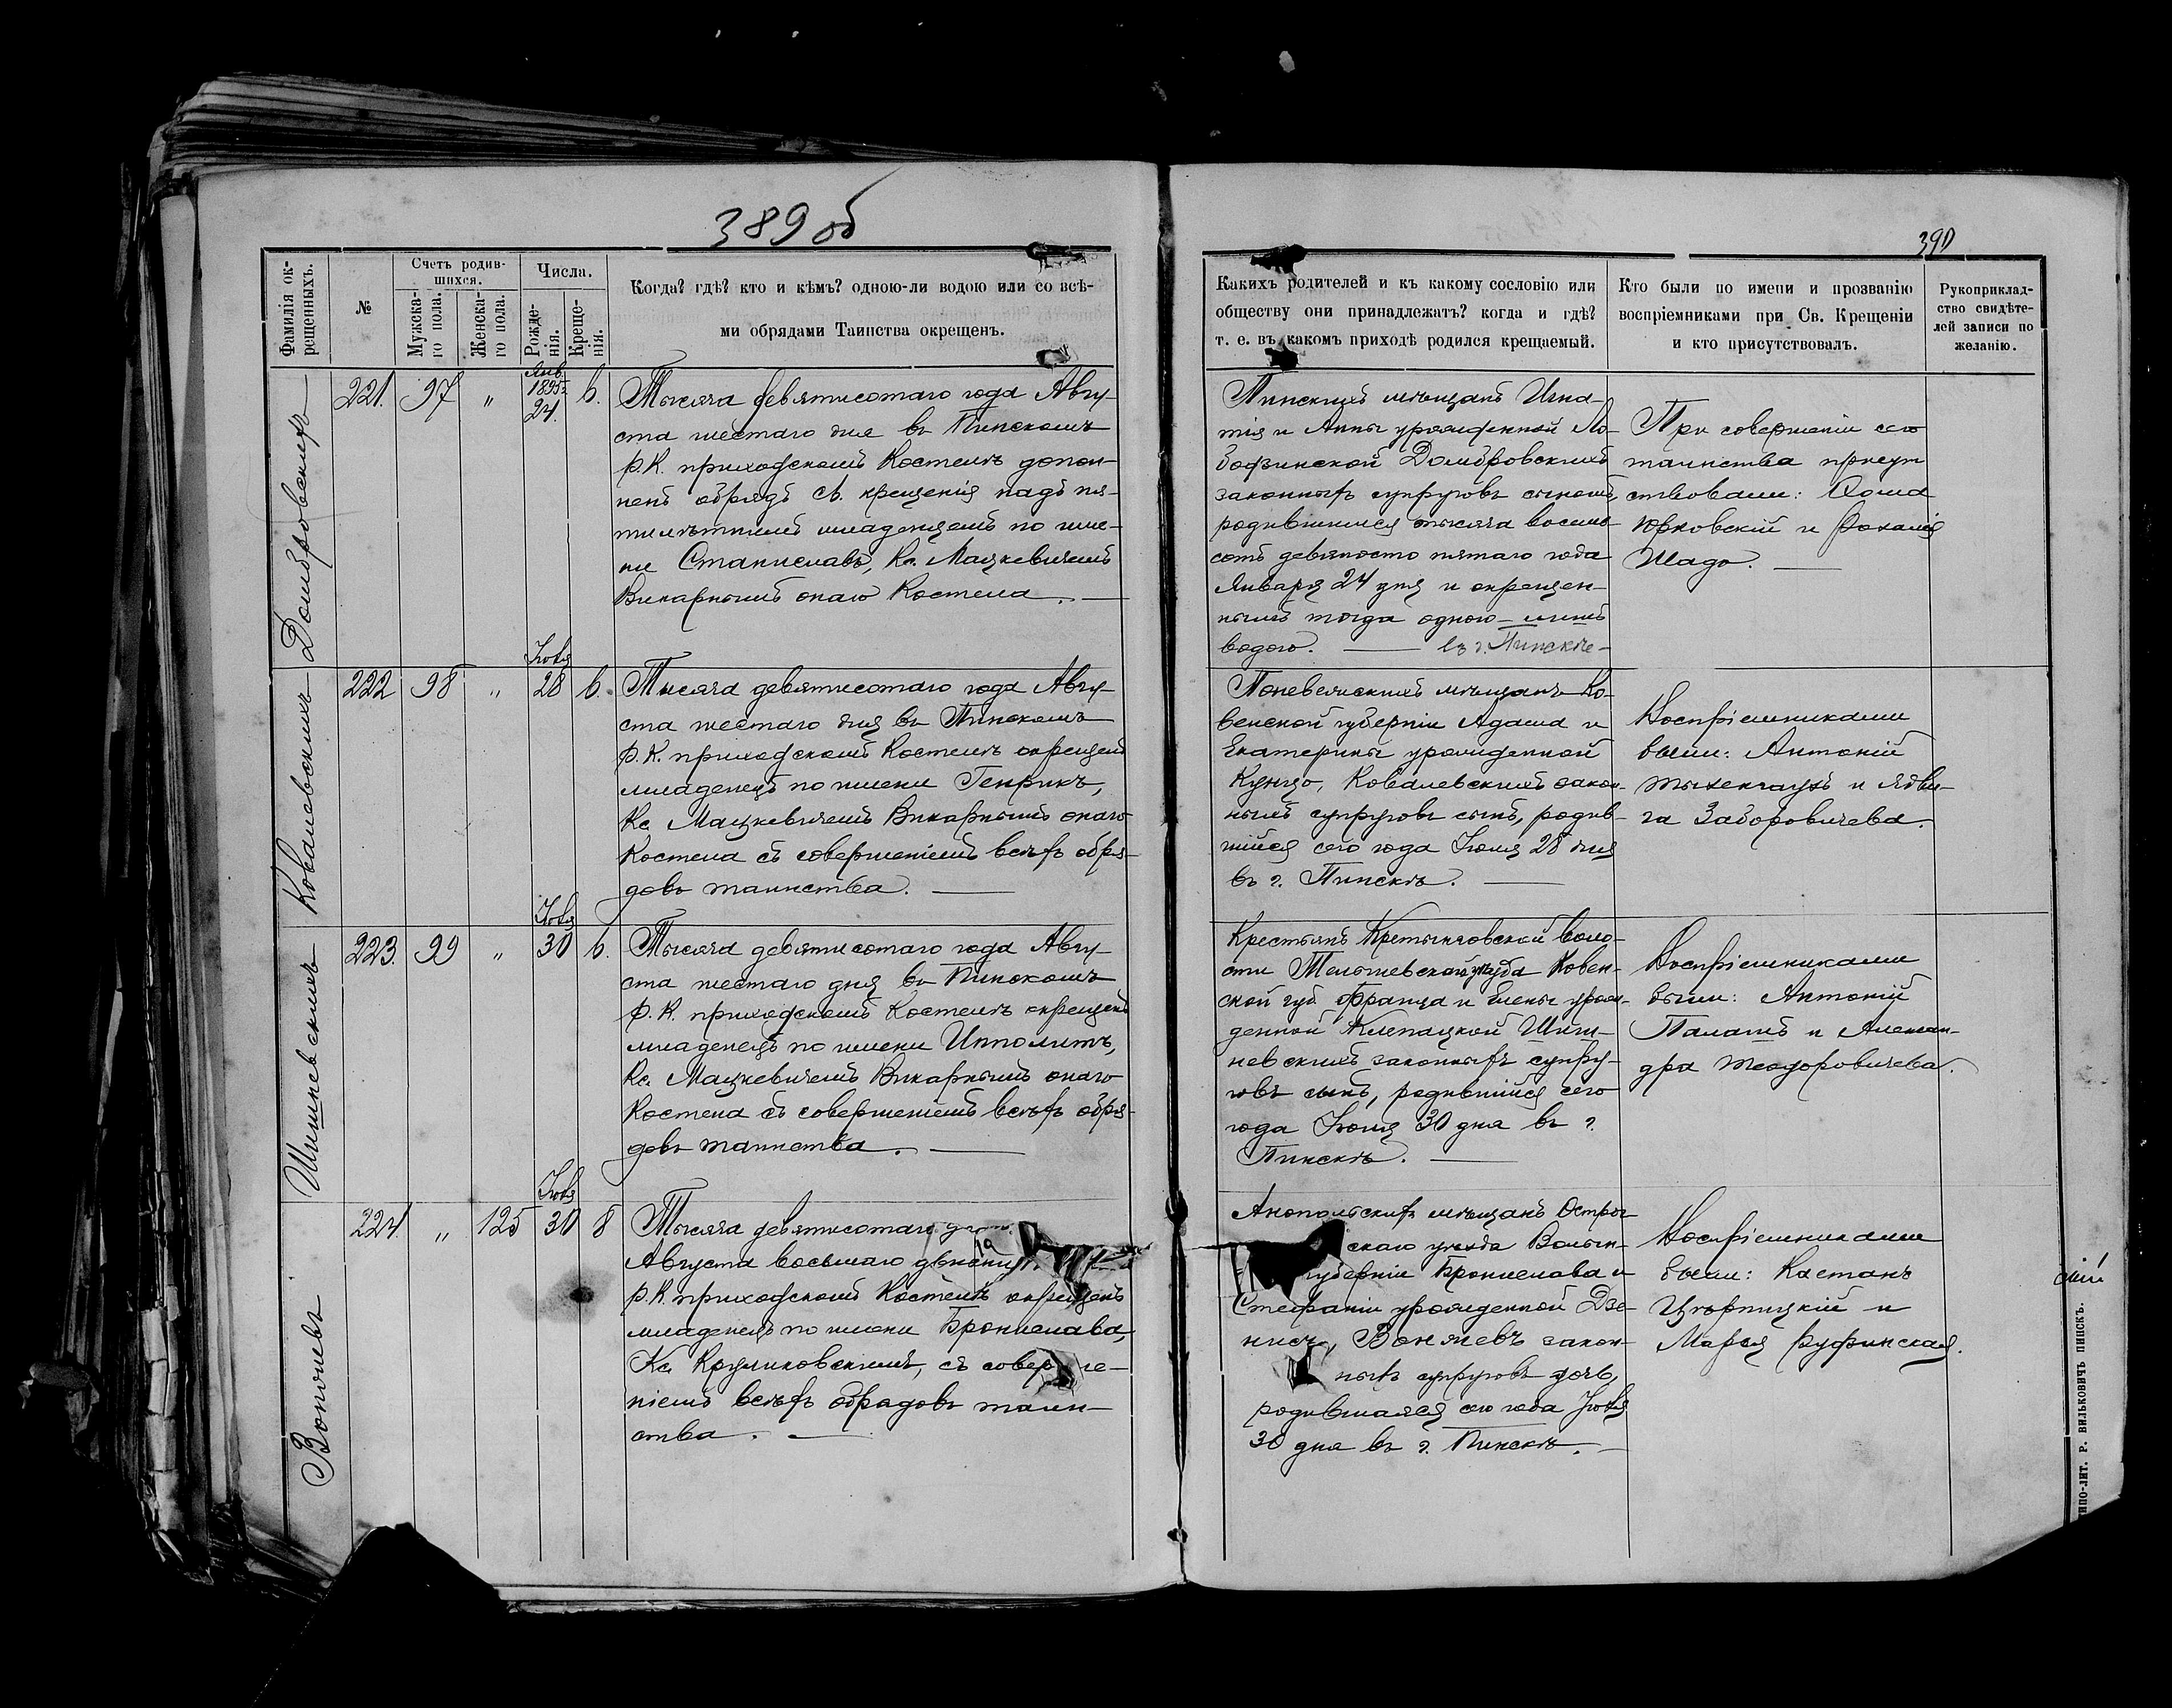 389 об
390
Фамилія ок-
рещенныхъ.
№
Счетъ родив-
шихся.
Мужска-
го пола.
Женска-
го пола.
Числа.
Рожде-
нія.
Креще-
нія.
Когда? гдѣ? кто и кѣмъ? одною-ли водою или со всѣ-
ми обрядами Таинства окрещенъ.
Какихъ родителей и къ какому сословію или
обществу они принадлежатъ? когда и гдѣ?
т. е. въ какомъ приходѣ родился крещаемый.
Кто были по имени и прозванію
воспріемниками при Св. Крещеніи
и кто присутствовалъ.
Рукоприклад-
ство свидѣте-
лей записи по
желанію.
Домбровскихъ
221. 97 „
Янв.
1895г.
24.
6.
Тысяча девятисотаго года Авгу-
ста шестаго дня въ Пинскомъ
Р.К. приходскомъ Костелѣ допол-
ненъ обрядъ Св. крещенія надъ пя-
тилѣтнимъ младенцемъ по име-
ни Станиславъ, Кс. Мацкевичемъ
Викарнымъ онаго Костела.
Пинскихъ мѣщанъ Игна-
тія и Анны урожденной Ло-
бодзинской Домбровскихъ
законныхъ супруговъ сыномъ,
родившимся тысяча восемь-
сотъ девяносто пятаго года
Января 24 дня и окрещен-
нымъ тогда одною лишь
водою. въ г. Пинскѣ
При совершеніи сего
таинства присут
ствовали: Ѳома
Юрковскій и Розалія
Шадо.
Ковалевскихъ
222 98 „
Іюля
28 6.
Тысяча девятисотаго года Авгу-
ста шестаго дня въ Пинскомъ
Р.К. приходскомъ Костелѣ окрещенъ
младенецъ по имени Генрикъ,
Кс. Мацкевичемъ Викарнымъ онаго
Костела съ совершеніемъ всѣхъ обря-
довъ таинства.
Поневежскихъ мѣщанъ Ко-
венской губерніи Адама и
Екатерины урожденной
Кунцо, Ковалевскихъ закон-
ныхъ супруговъ сынъ, родив-
шійся сего года Іюля 28 дня
въ г. Пинскѣ.
Воспріемниками
были: Антоній
и Ядви-
га Заборовичева.
Шишневскихъ
223. 99 „
Іюля
30 6.
Тысяча девятисотаго года Авгу-
ста шестаго дня въ Пинскомъ
Р.К. приходскомъ Костелѣ окрещенъ
младенецъ по имени Ипполитъ,
Кс. Мацкевичемъ Викарнымъ онаго
Костела съ совершеніемъ всѣхъ обря-
довъ таинства.
Крестьянъ Кретынговской воло-
сти Тельшевскаго уѣзда Ковен-
ской губ. Франца и Елены урож-
денной Клепацкой Шиш-
невскихъ законныхъ супру-
говъ сынъ, родившійся сего
года Іюля 30 дня въ г.
Пинскѣ.
Воспріемниками
были: Антоній
Палашъ и Алексан-
дра Теодоровичева.
Вонлевъ
224. „ 125
Іюля
30 8
Тысяча девятисотаго
Августа восьмаго дня
Р.К. приходскомъ Костелѣ окрещенъ
младенецъ по имени Брониславъ,
Кс. Круликовскимъ, съ соверше-
ніемъ всѣхъ обрядовъ таин-
ства.
Анопольскихъ мѣщанъ Острог
скаго уѣзда Волын-
губерніи Бронислава и
Стефаніи урожденной Дзе-
нисъ, Вонлевъ закон-
ныхъ супруговъ дочь,
родившаяся сего года Іюля
30 дня въ г. Пинскѣ.
Воспріемниками
были: Каетанъ
и
Марья Рудзинская.
ТИПО-ЛИТ. Р. ВИЛЬКОВИЧЪ ПИНСКЪ.